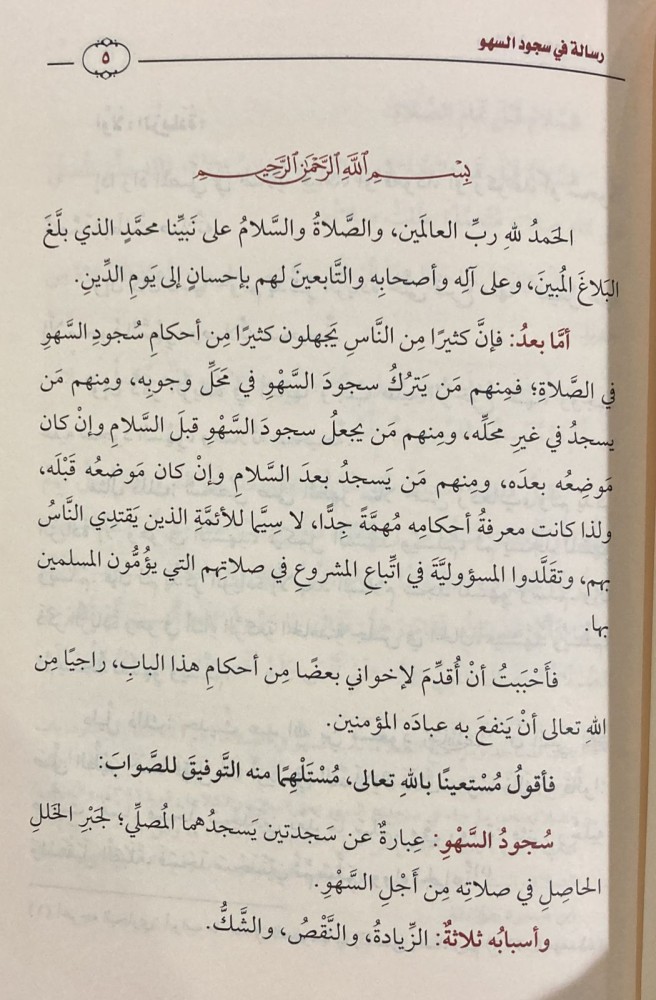 رسالة في سجود السهو
٥
بِسْمِ اللَّهِ الرَّحْمَٰنِ الرَّحِيمِ
الحَمدُ للهِ ربِّ العالمَين، والصَّلاةُ والسَّلامُ على نَبيِّنا محمَّدٍ الذي بلَّغَ
البَلاغَ المُبينَ، وعلى آلِه وأصحابِه والتَّابعينَ لهم بإحسانٍ إلى يَومِ الدِّينِ.
أمَّا بعدُ: فإنَّ كثيرًا مِن النَّاسِ يَجهلون كثيرًا مِن أحكامِ سُجودِ السَّهوِ
في الصَّلاةِ؛ فمِنهم مَن يَترُكُ سجودَ السَّهْوِ في مَحَلِّ وجوبِه، ومِنهم مَن
يسجدُ في غيرِ محلِّه، ومِنهم مَن يجعلُ سجودَ السَّهْوِ قبلَ السَّلامِ وإنْ كان
مَوضِعُه بعدَه، ومِنهم مَن يَسجدُ بعدَ السَّلامِ وإنْ كان مَوضعُه قَبْلَه،
ولذا كانت معرفةُ أحكامِه مُهمَّةً جِدًّا، لا سِيَّما للأئمَّةِ الذين يَقتدِي النَّاسُ
بهم، وتقَلَّدوا المسؤوليَّةَ في اتِّباعِ المشروعِ في صلاتِهم التي يؤُمُّون المسلمين
بها.
فأَحْبَبتُ أنْ أُقدِّمَ لإخواني بعضًا مِن أحكامِ هذا البابِ، راجيًا مِن
اللهِ تعالى أنْ يَنفعَ به عبادَه المؤمنين.
فأقولُ مُسْتعينًا باللهِ تعالى، مُسْتَلْهِمًا منه التَّوفيقَ للصَّوابِ:
سُجودُ السَّهْوِ: عِبارةٌ عن سَجدتين يَسجدُهما المُصلِّي؛ لجَبْرِ الخَللِ
الحاصِلِ في صلاتِه مِن أَجْلِ السَّهْوِ.
وأسبابُه ثلاثةٌ: الزِّيادةُ، والنَّقْصُ، والشَّكُّ.